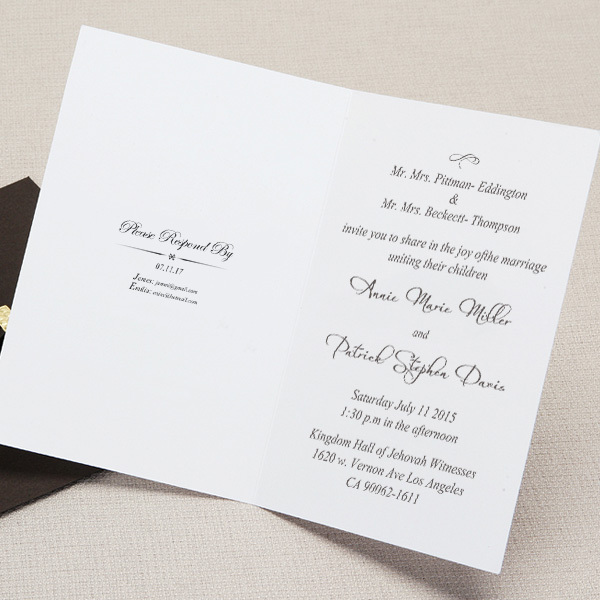 Please Respond By
07.11.17
Jones: jones@gmail.com
Mr. Mrs. Pittman- Eddington
&
Mr. Mrs. Beckectt- Thompson
invite you to share in the joy ofthe marriage
uniting their children
Annie Marie Miller
and
Patrick Stephen Davis
Saturday July 11 2015
1:30 p.m in the afternoon
Kingdom Hall of Jehovah Witnesses
1620 w. Vernon Ave Los Angeles
CA 90062-1611